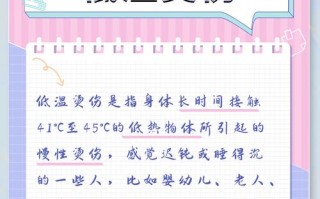 低温烫伤
低温烫伤是指身体长时间接触
41℃至45℃的低热物体所引起的
慢性烫伤，感觉迟钝或睡得沉
的一些人，比如婴幼儿、老人、